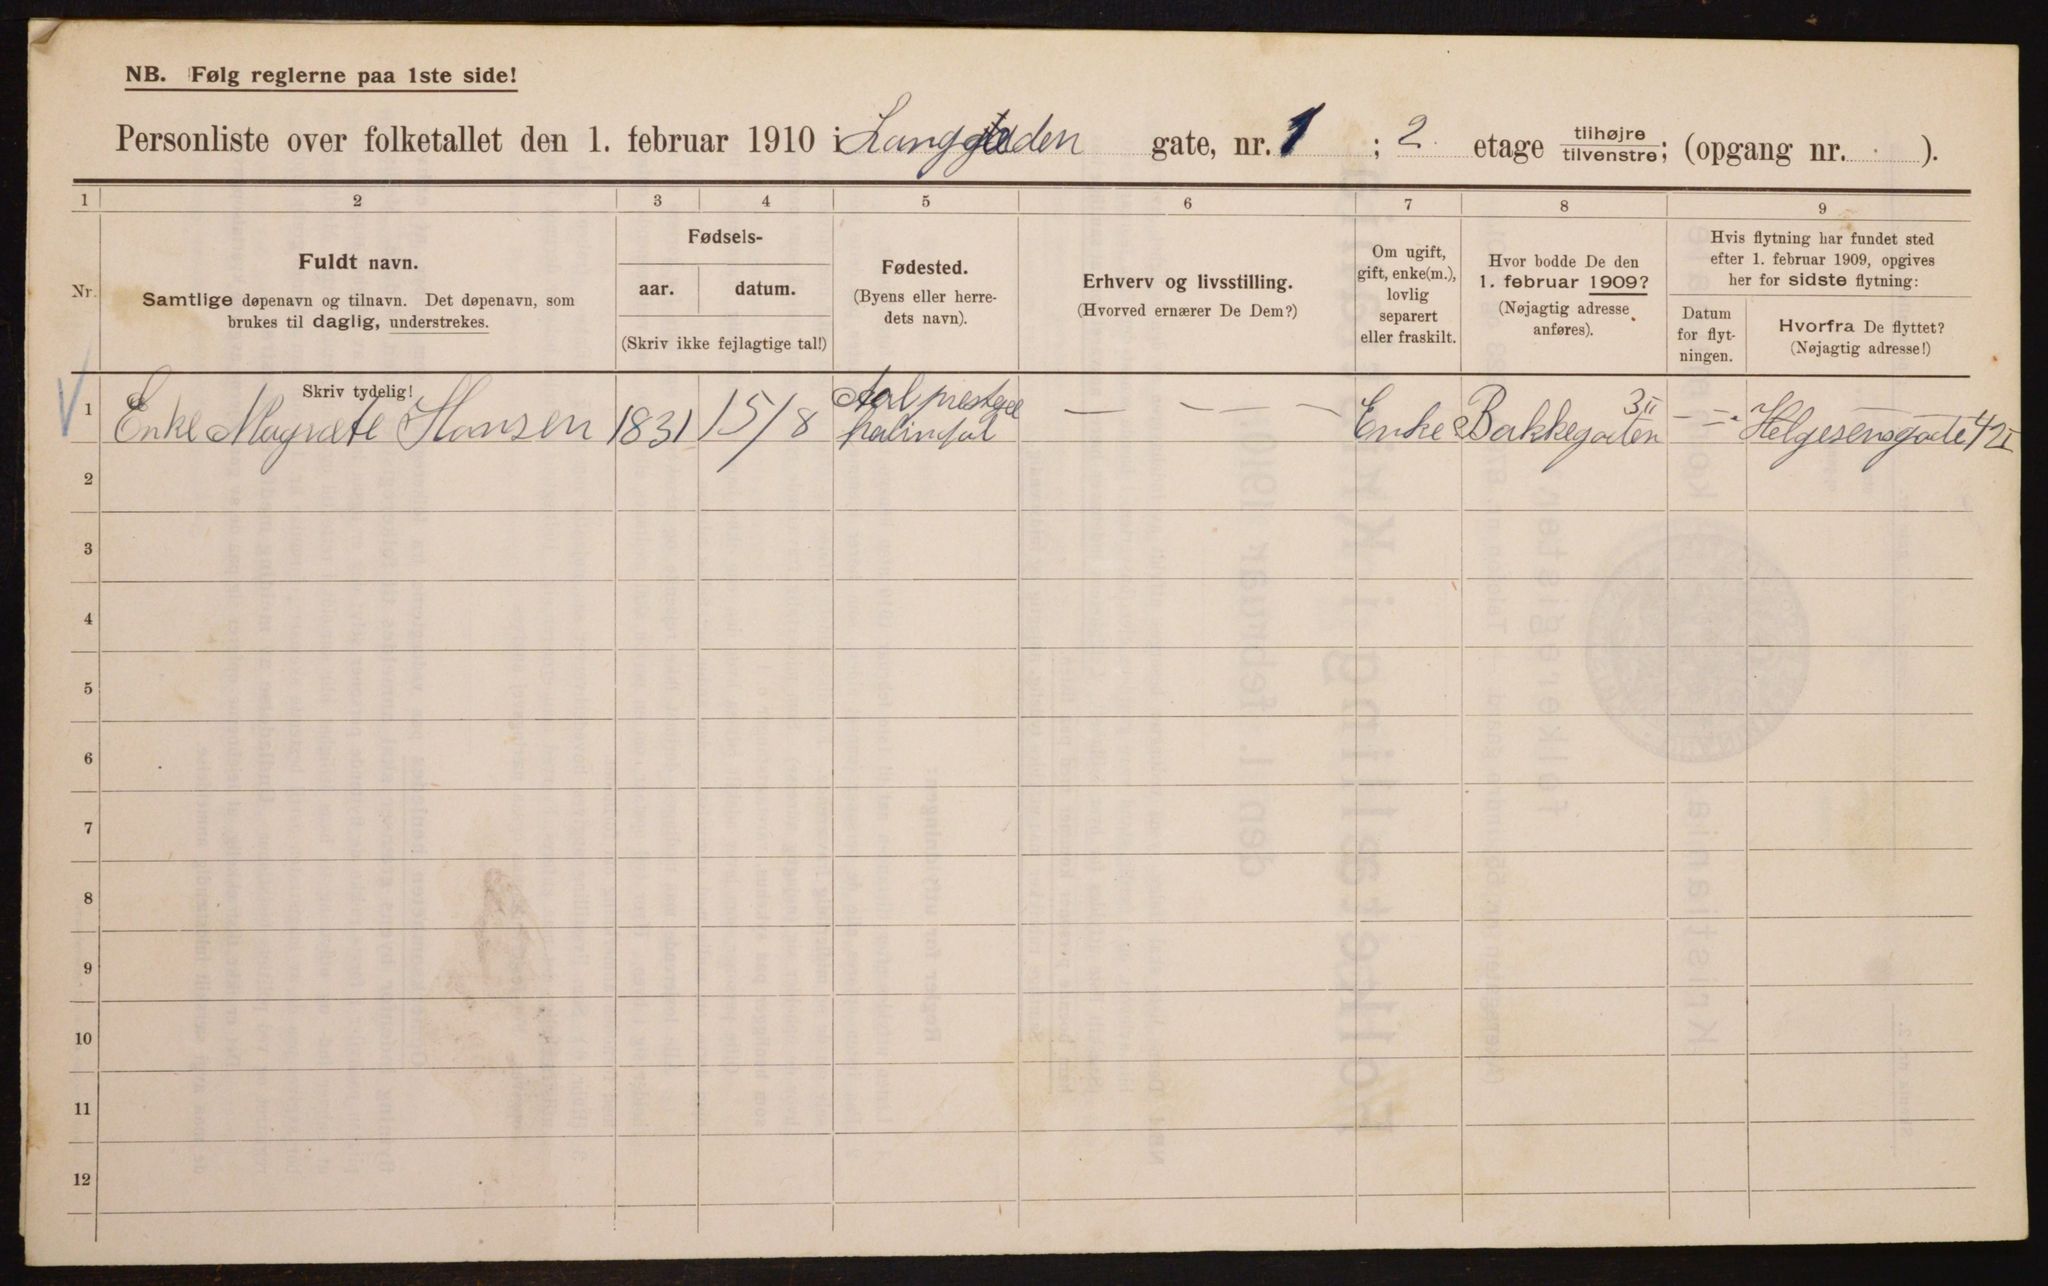 NB. Følg reglerne paa 1ste side!
Personliste over folketallet den 1. februar 1910 i Langgaden gate, nr. 1 ; 2 etage tilhøjre/tilvenstre; (opgang nr. ).
1 2 3 4 5 6 7 8 9
Nr.
Fuldt navn.
Samtlige døpenavn og tilnavn. Det døpenavn, som
brukes til daglig, understrekes.
Skriv tydelig!
Fødsels-
aar. datum.
(Skriv ikke fejlagtige tal!)
Fødested.
(Byens eller herre-
dets navn).
Erhverv og livsstilling.
(Hvorved ernærer De Dem?)
Om ugift,
gift, enke(m.),
lovlig
separert
eller fraskilt.
Hvor bodde De den
1. februar 1909?
(Nøjagtig adresse
anføres).
Hvis flytning har fundet sted
efter 1. februar 1909, opgives
her for sidste flytning:
Datum
for flyt-
ningen.
Hvorfra De flyttet?
(Nøjagtig adresse!)
1 Enke Magrete Hansen 1831 15/8 — — — — Enke Bakkegaten 3II — — Helgesensgate 42I
2
3
4
5
6
7
8
9
10
11
12